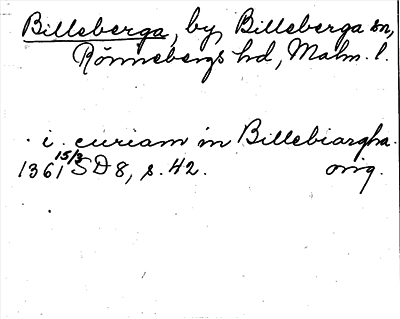 Billeberga, by, Billeberga sn,
Rönnebergs hd, Malm. l.
i. curiam in Billebiargha.
1361 15/3 SD 8, s. 42. orig.